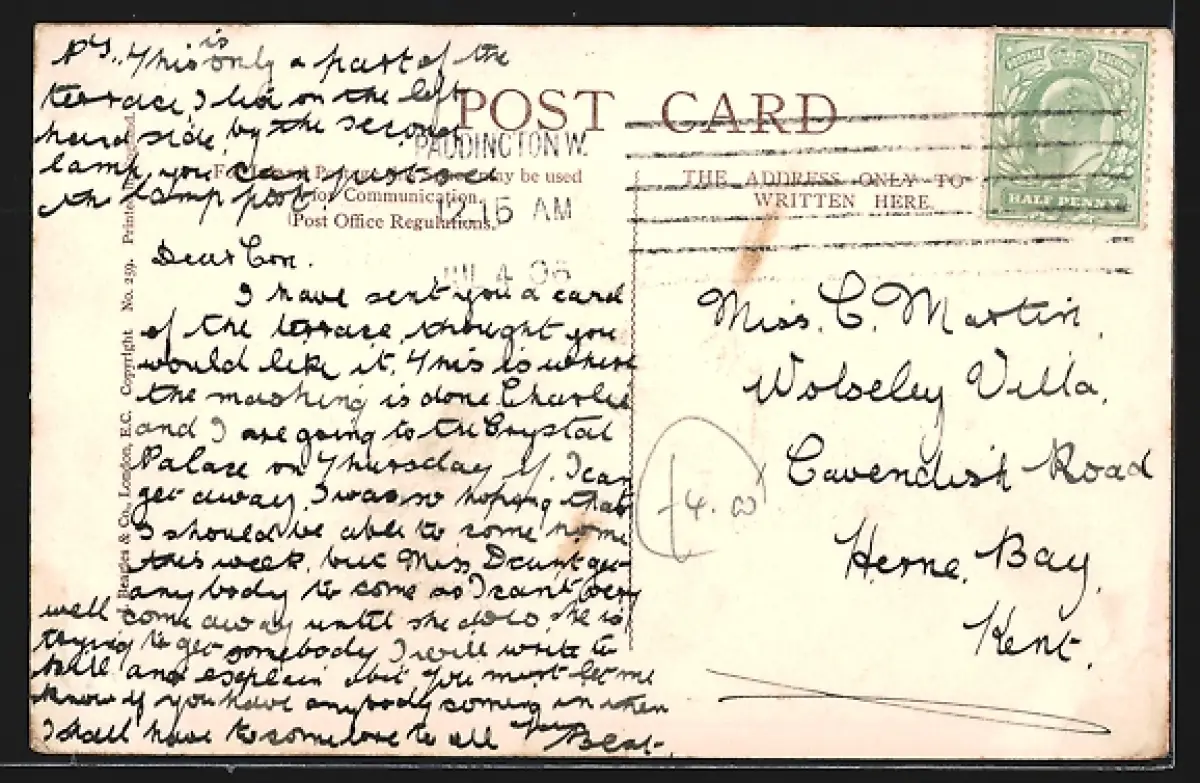 P.S. This is only a part of the
terrace, I lid on the left
hand side, by the second
lamp, you can just see
the lamp post
POST CARD
PADDINGTON W.
12.15 AM
JUL 4 06
For Inland Postage only, this space may be used
for Communication.
(Post Office Regulations.)
THE ADDRESS ONLY TO
WRITTEN HERE.
HALF PENNY
Beagles & Co., London, E.C. Copyright No. 259. Printed
Dear Con.
I have sent you a card
of the terrace, thought you
would like it, This is where
the mashing is done Charlie
and I are going to the Crystal
Palace on Thursday if I can
get away, I was so hoping that
I should be able to come home
this week, but Miss D cant get
anybody to come as I cant very
well come away until she does, she is
trying to get somebody I will write to
and explain but you must let me
know if you have anybody coming in when
I shall have to come love to all Beat.
Miss. C. Martin,
Wolseley Villa,
Cavendish Road
Herne, Bay,
Kent.